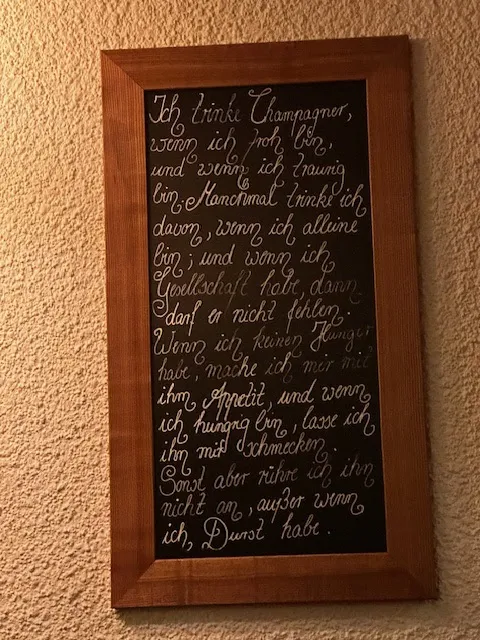 Ich trinke Champagner,
wenn ich froh bin,
und wenn ich traurig
bin. Manchmal trinke ich
davon, wenn ich alleine
bin; und wenn ich
Gesellschaft habe, dann
darf er nicht fehlen.
Wenn ich keinen Hunger
habe, mache ich mir mit
ihm Appetit, und wenn
ich hungrig bin, lasse ich
ihn mir schmecken.
Sonst aber rühre ich ihn
nicht an, außer wenn
ich Durst habe.